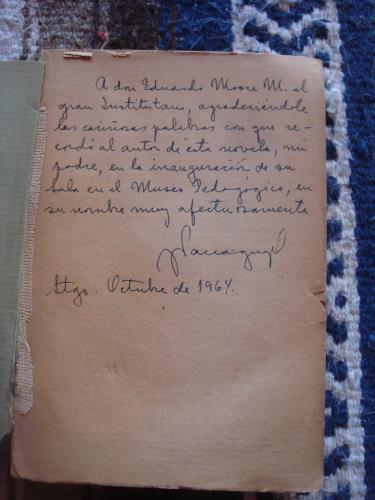 A don Eduardo Moore M. al
gran Institutano, agradeciéndole
las cariñosas palabras con que re-
cordó al autor de esta novela, mi
padre, en la inauguración de su
sala en el Museo Pedagógico, en
su nombre muy afectuosamente
Stgo. Octubre de 1964.